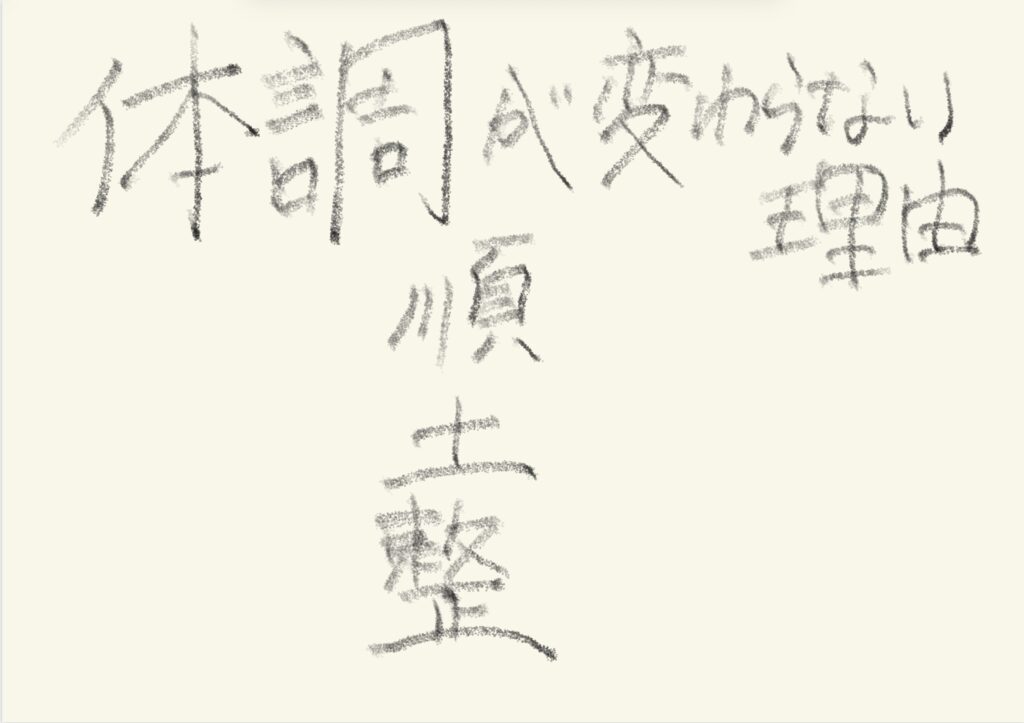 体調が変わらない
理由
順
土
整